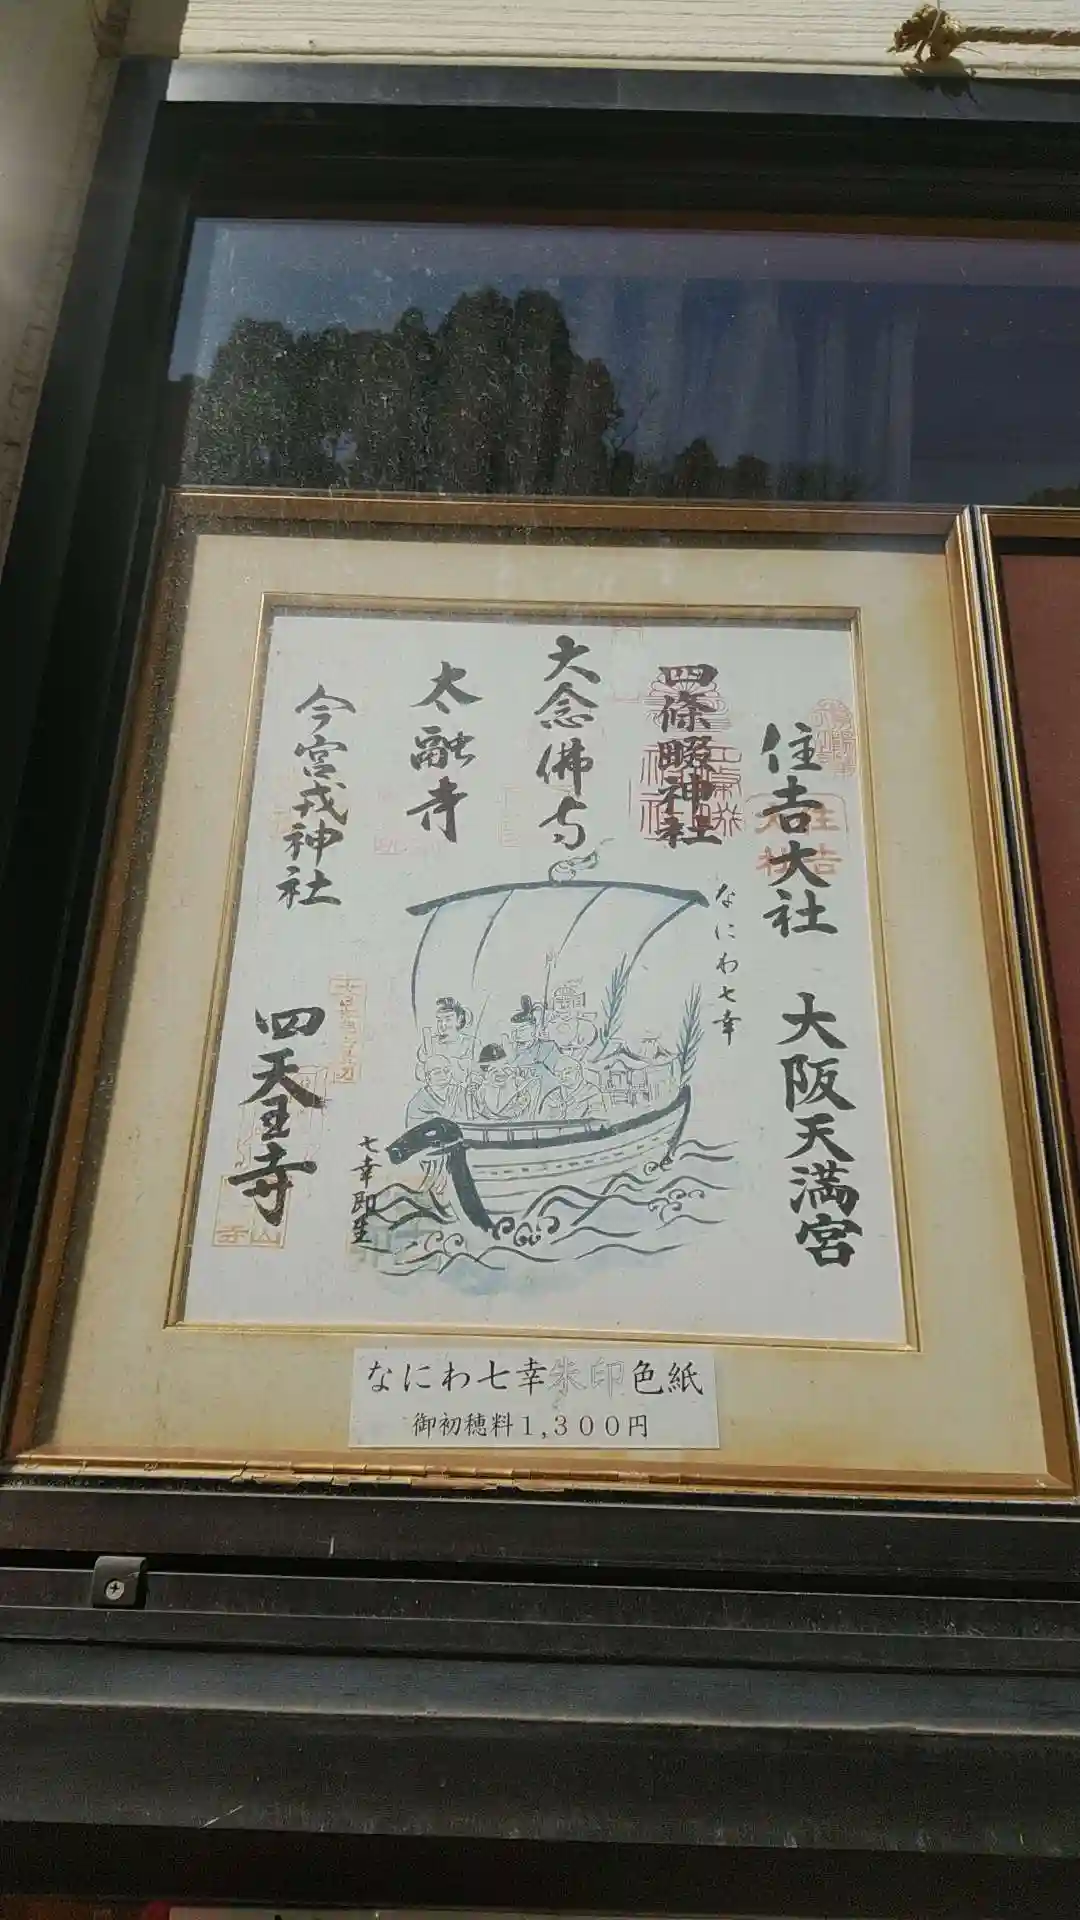 住吉大社
大阪天満宮
四條畷神社
大念佛寺
太融寺
今宮戎神社
四天王寺
なにわ七幸
七幸即生
なにわ七幸朱印色紙
御初穂料1,300円